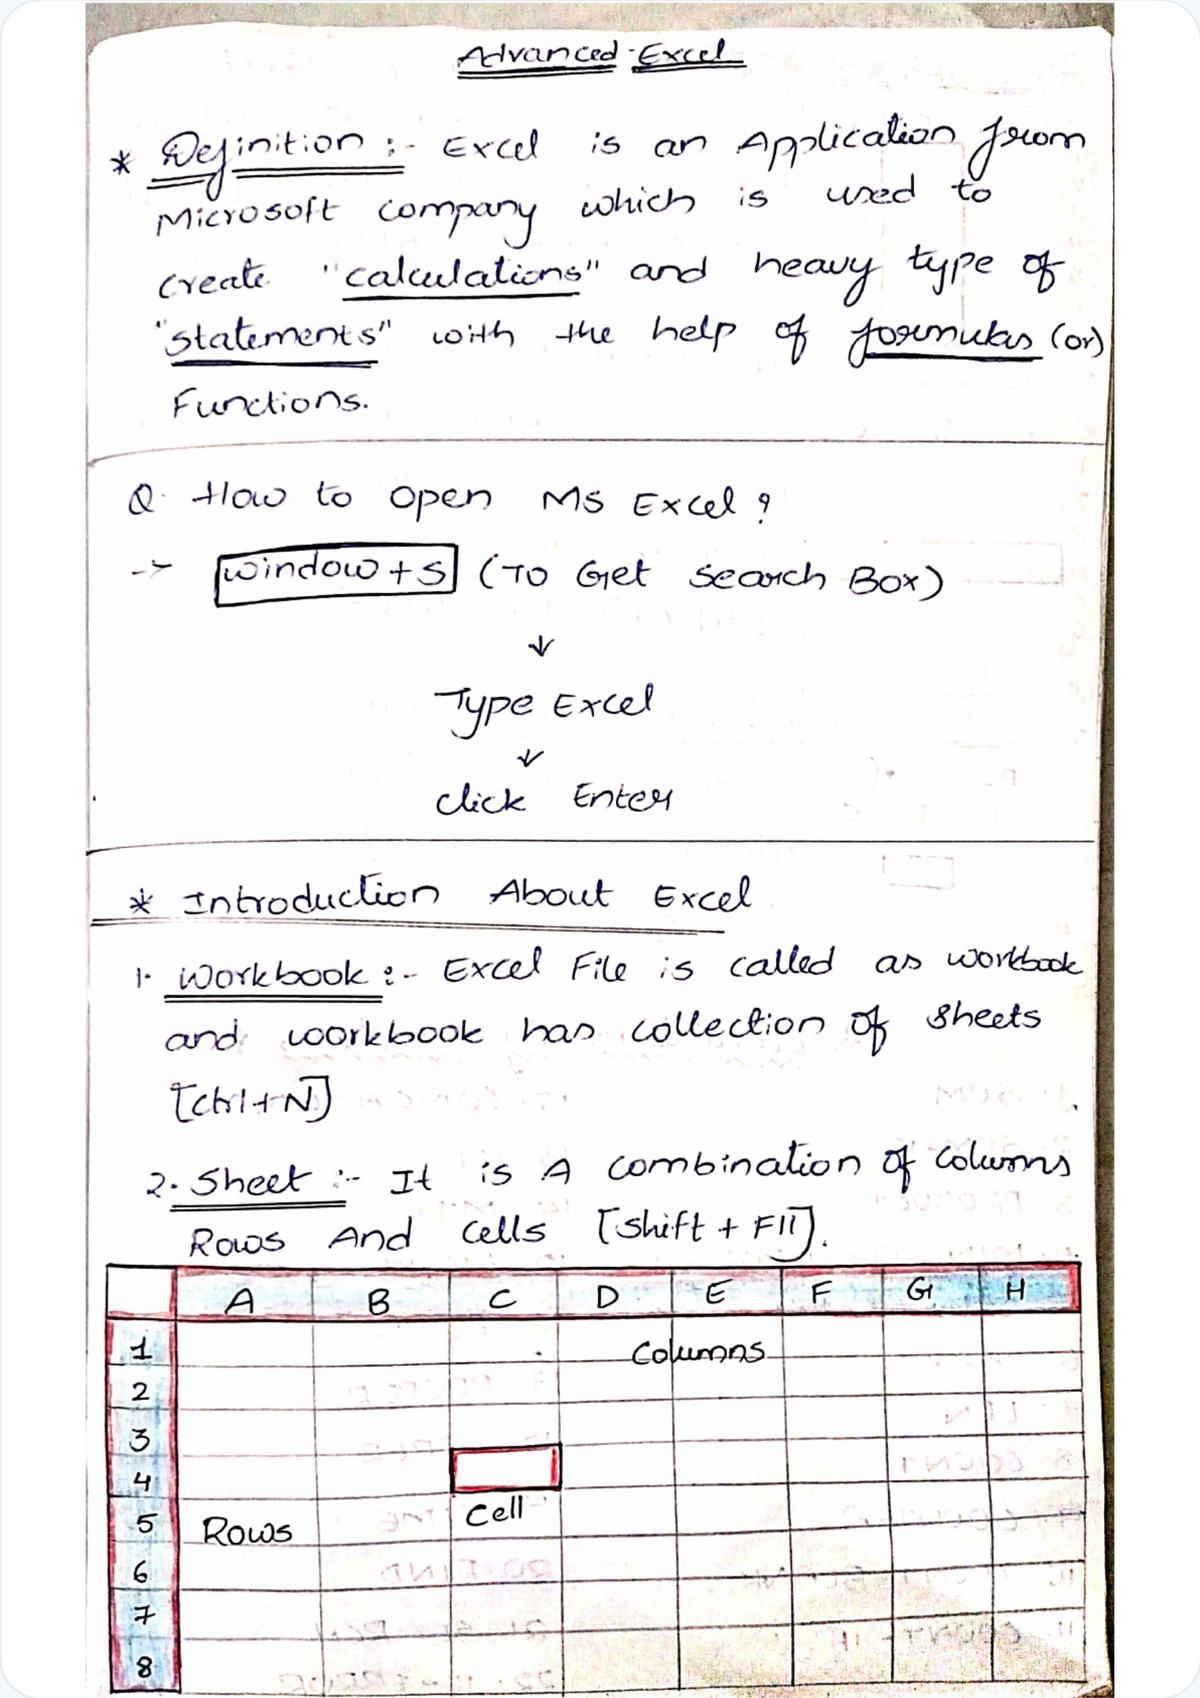 Advanced Excel
* Definition :- Excel is an Application from
Microsoft company which is used to
create "calculations" and heavy type of
"statements" with the help of formulas (or)
Functions.
Q. How to open MS Excel?
-> window + S (To Get Search Box)
↓
Type Excel
↓
click Enter
* Introduction About Excel
1. Workbook :- Excel File is called as workbook
and workbook has collection of sheets
[ctrl+N]
2. Sheet :- It is A combination of columns
Rows And cells [shift + F11].
A B C D E F G H
1 Columns
2
3
4
5 Rows Cell
6
7
8